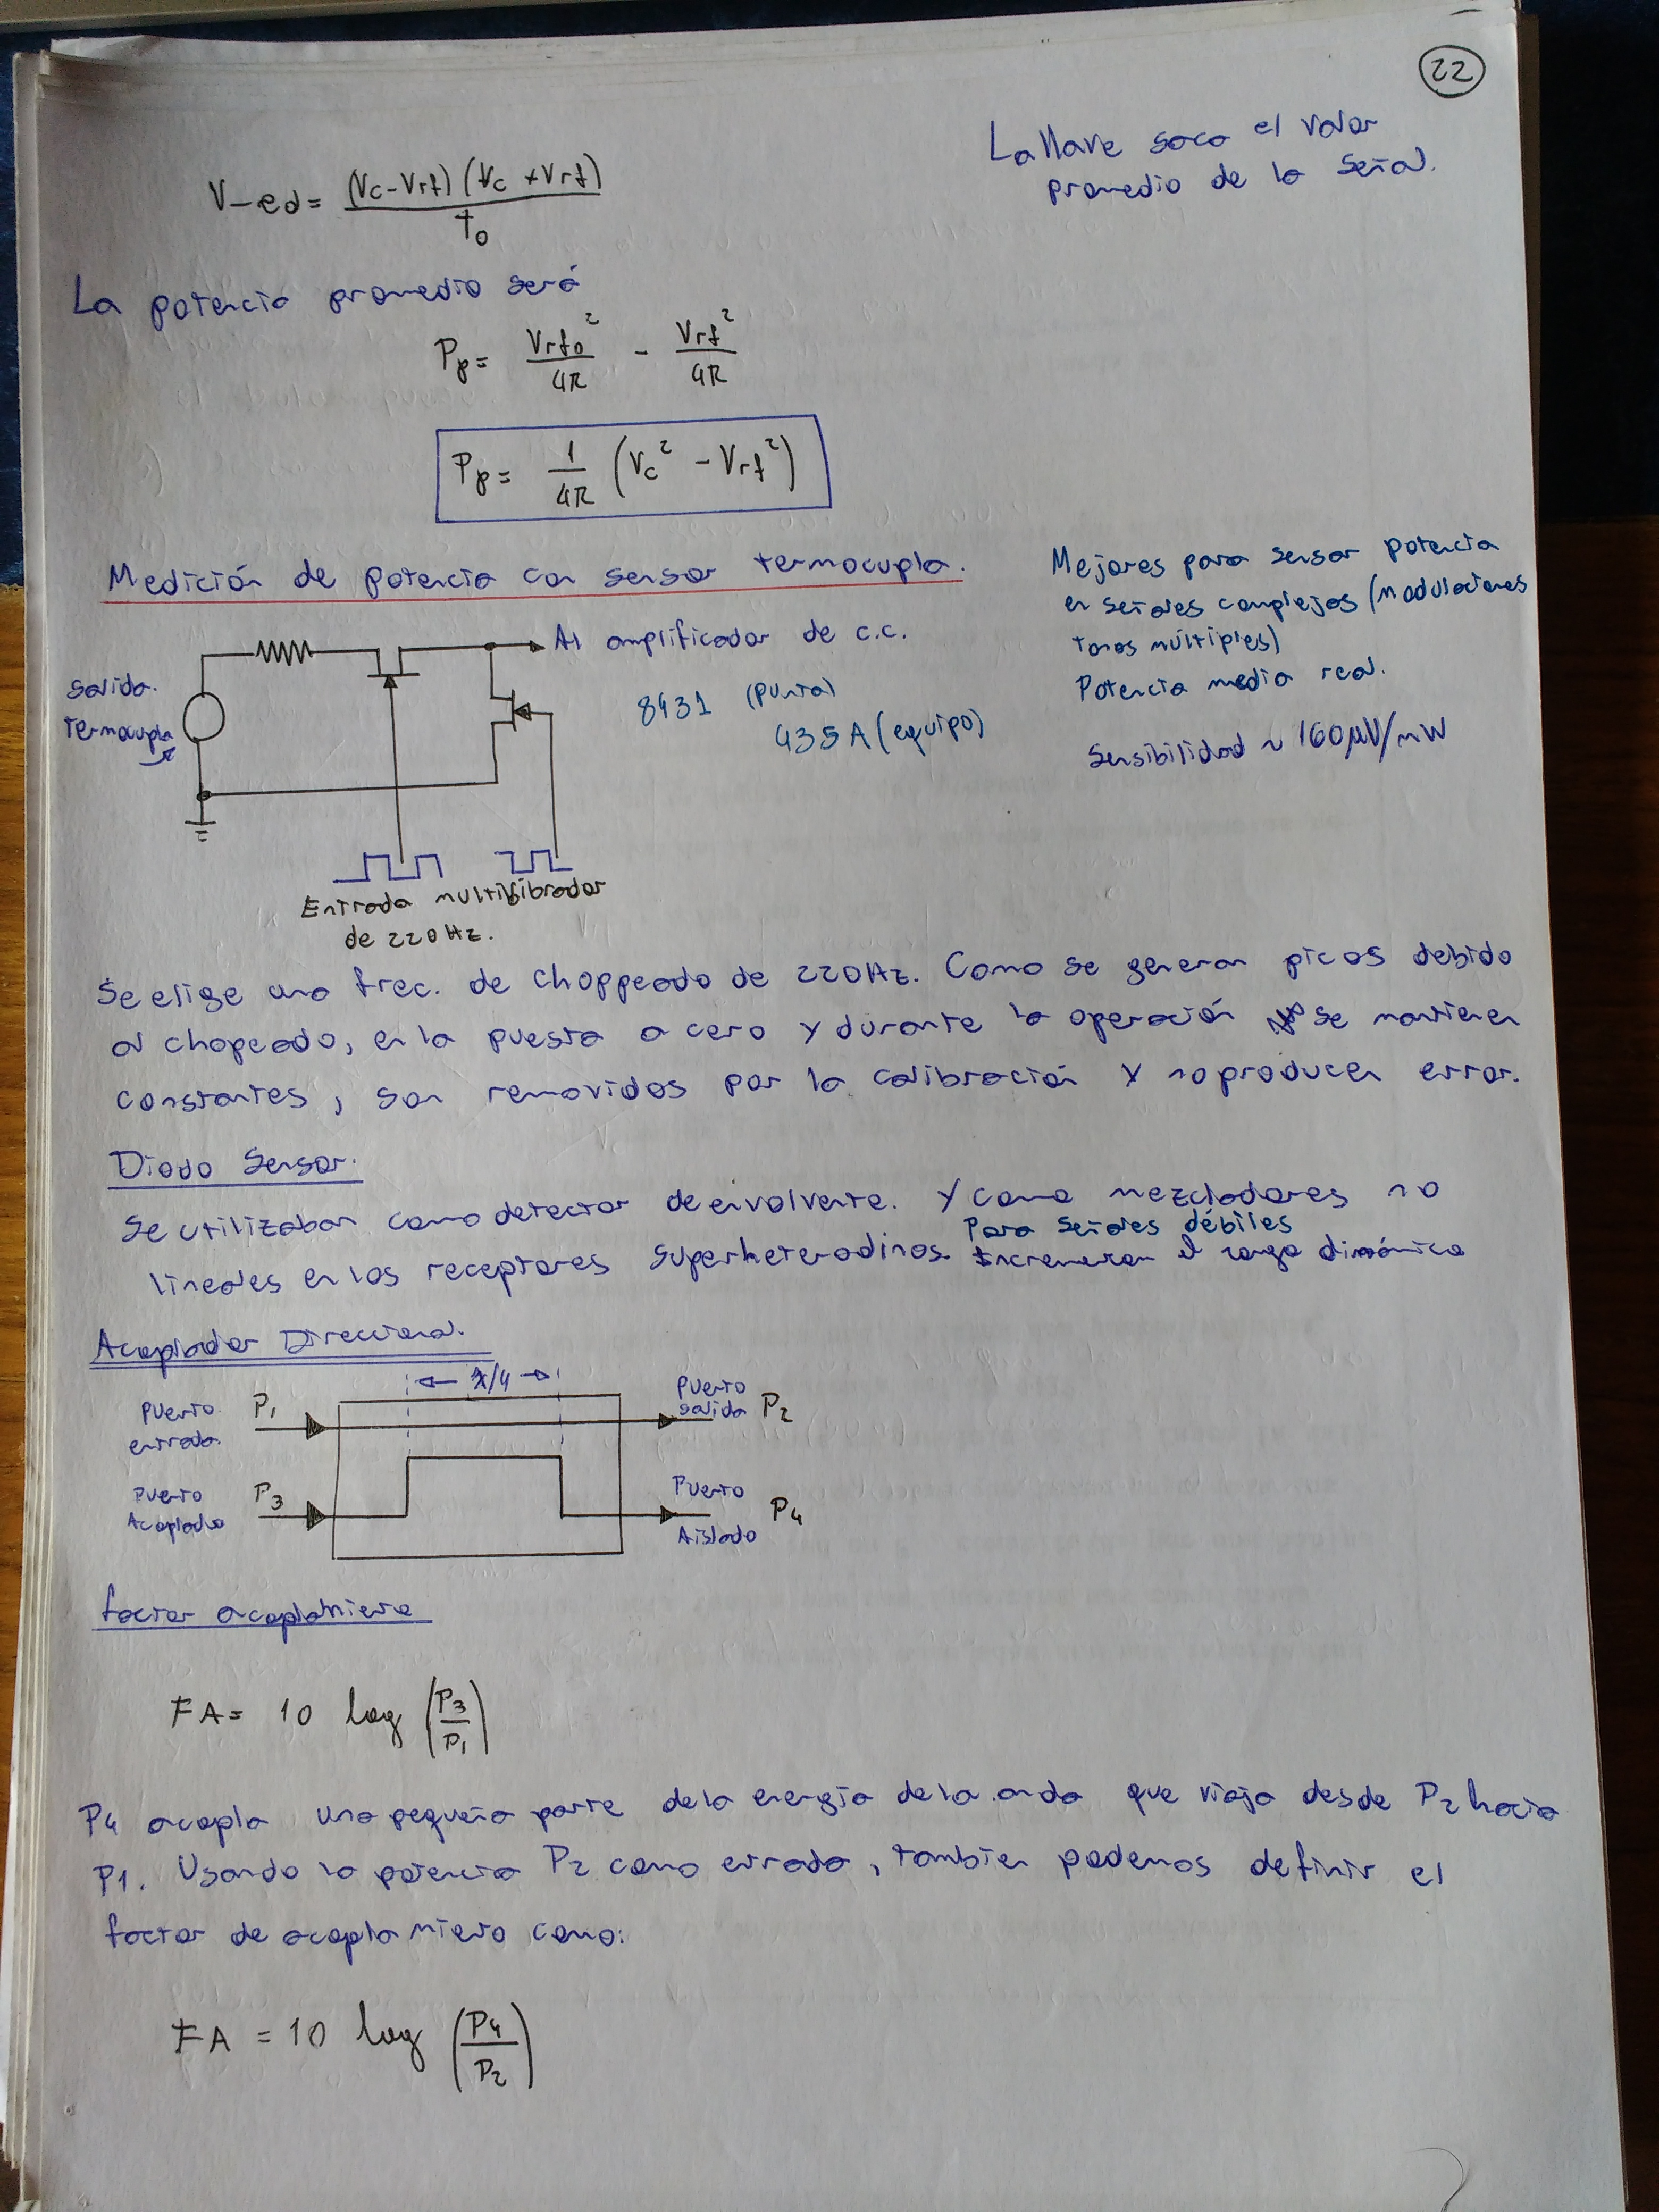 22
La llave saca el valor
promedio de la señal.
V_ed = (Vc - Vrf) (Vc + Vrf) / t0
La potencia promedio será
Pp = Vrf0² / 4R - Vrf² / 4R
Pp = 1 / 4R (Vc² - Vrf²)
Medición de potencia con sensor termocupla.
Mejores para sensar potencia
en señales complejas (modulaciones
tonos múltiples)
Potencia media real.
Sensibilidad ~ 160µV/mW
Al amplificador de c.c.
8431 (punta)
435A (equipo)
Salida
Termocupla
Entrada multivibrador
de 220Hz.
Se elige una frec. de choppeado de 220Hz. Como se generan picos debido
al chopeado, en la puesta a cero y durante la operación se mantienen
constantes, son removidos por la calibración y no producen error.
Diodo Sensor.
Se utilizaban como detector de envolvente. Y como mezcladores no
Para señales débiles
lineales en los receptores superheterodinos. Incrementan el rango dinámico
Acoplador Direccional.
λ/4
Puerto entrada P1
Puerto salida P2
Puerto Acoplado P3
Puerto Aislado P4
factor acoplamiento
FA = 10 log (P3/P1)
P4 acopla una pequeña parte de la energía de la onda que viaja desde P2 hacia
P1. Usando la potencia P2 como entrada, tambien podemos definir el
factor de acoplamiento como:
FA = 10 log (P4/P2)